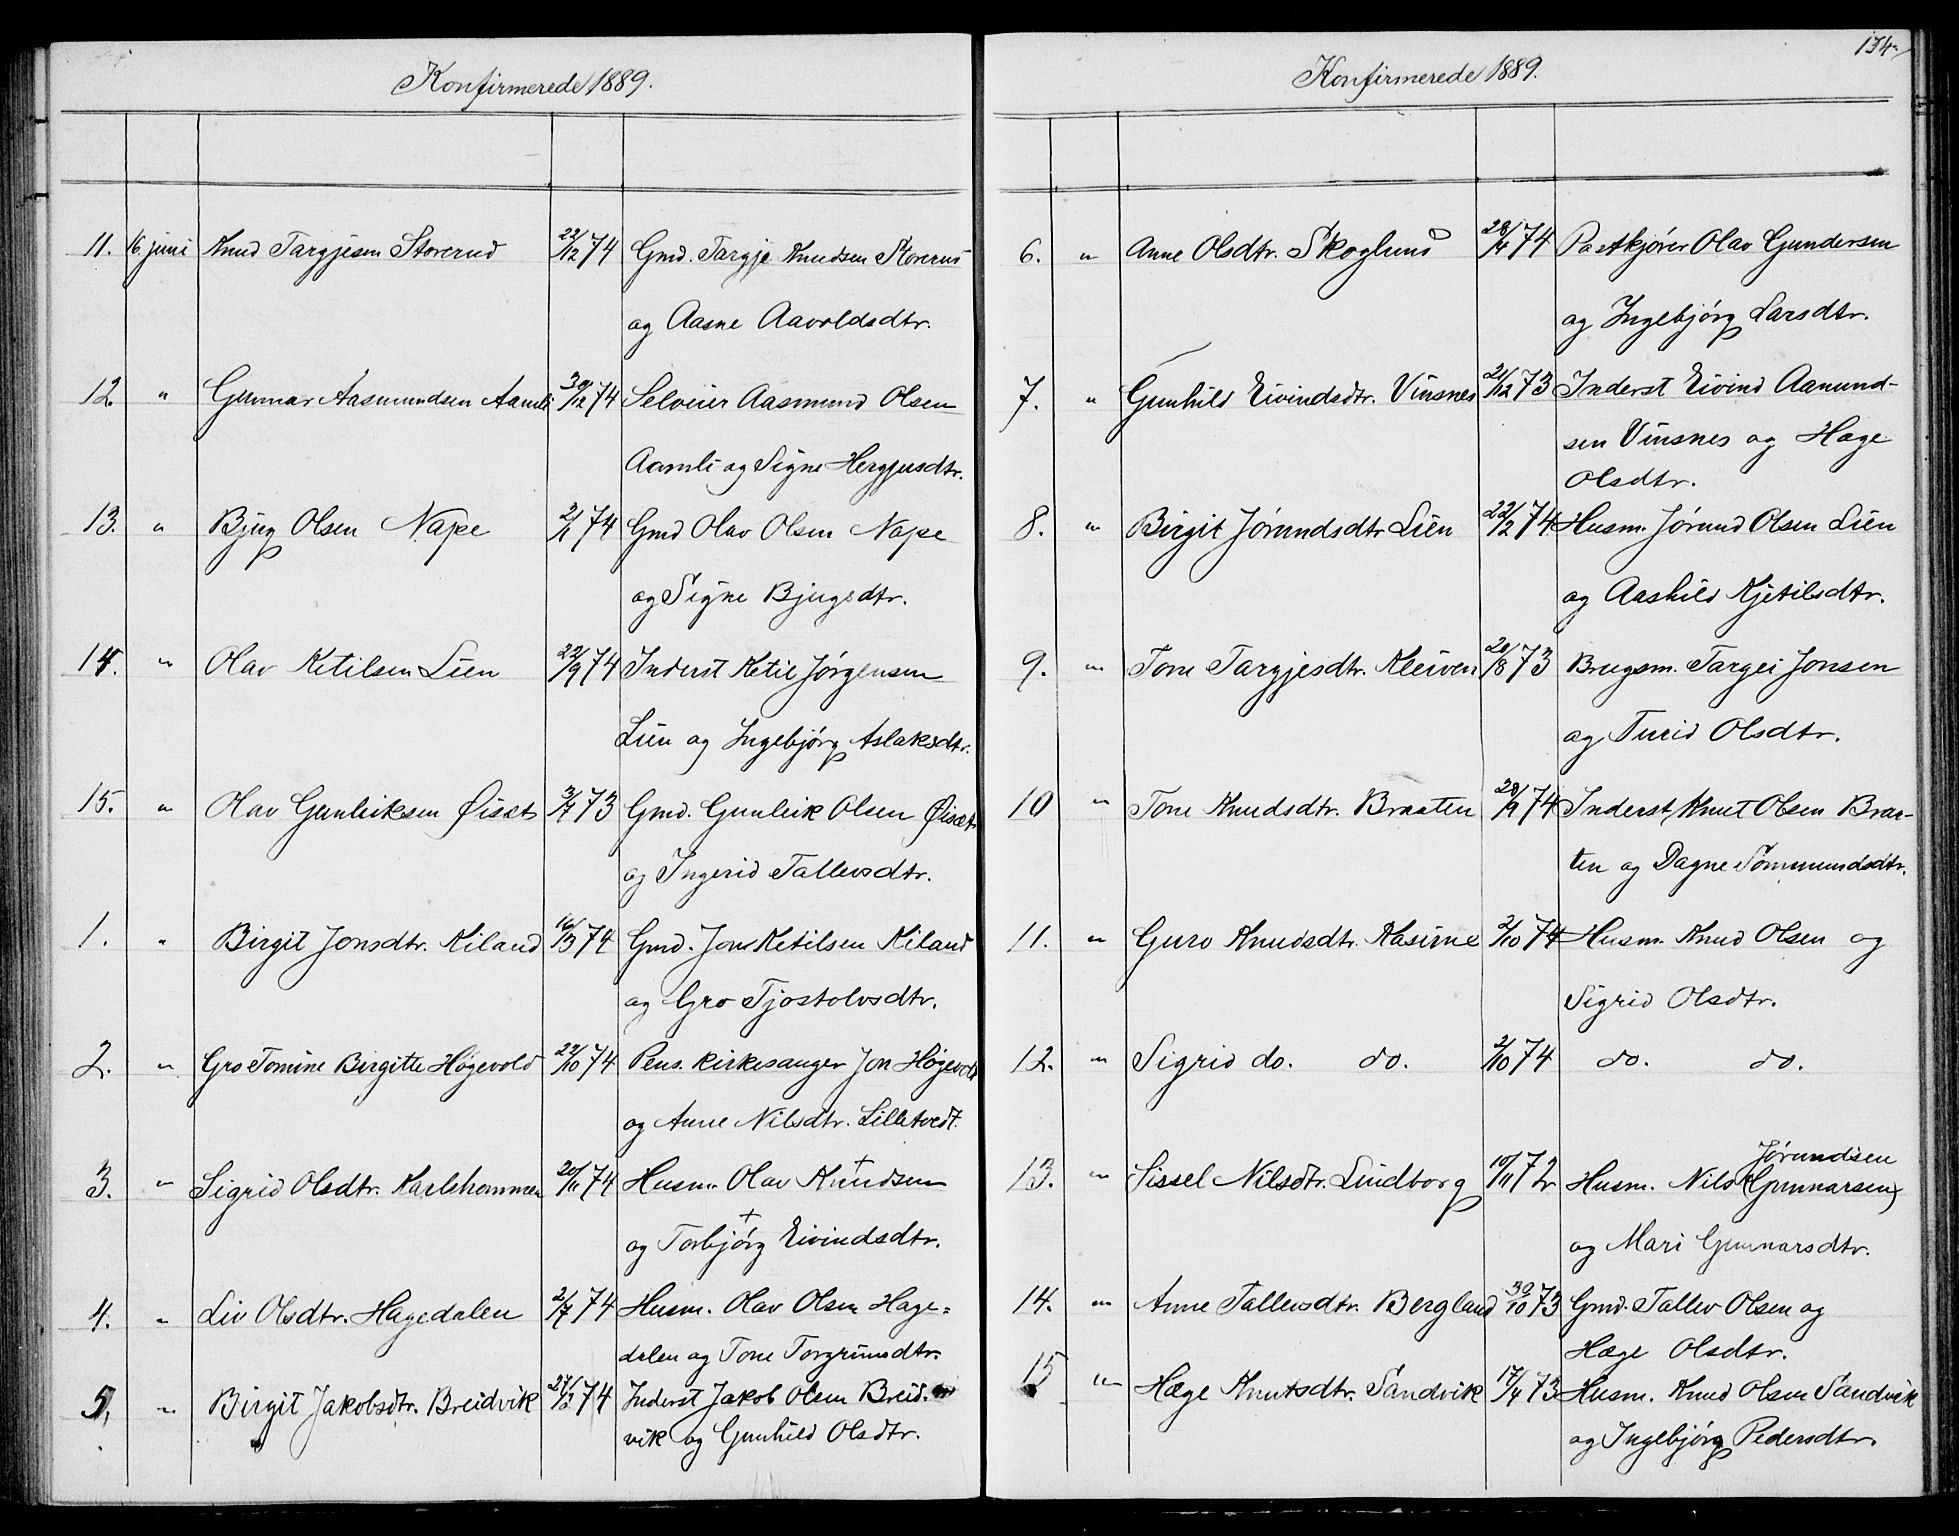 Konfirmerede 1889.
11. 16 juni Knud Targjesen Storerud 22/12 74 Gmd. Targje Knudsen Storerud
og Aasne Aavoldsdtr.
12. " Gunnar Aasmundsen Aamli 30/12 74 Selveier Aasmund Olsen
Aamli og Signe Hergjusdtr.
13. " Bjug Olsen Nape 2/1 74 Gmd Olav Olsen Nape
og Signe Bjugsdtr.
14. " Olav Ketilsen Lien 22/9 74 Inderst Ketil Jørgensen
Lien og Ingebjørg Aslaksdtr.
15. " Olav Gunleiksen Øisæt 3/7 73 Gmd. Gunleik Olsen Øisæt
og Ingerid Tallevsdtr.
1. " Birgit Jonsdtr. Kiland 16/3 74 Gmd. Jon Ketilsen Kiland
og Gro Tjostolvsdtr.
2. " Gro Tomine Birgitte Høgevold 22/10 74 Pens. kirkesanger Jon Høgevold
og Anne Nilsdtr. Lilletvedt.
3. " Sigrid Olsdtr. Karlshommen 20/11 74 Husm. Olav Knudsen
og Torbjørg Eivindsdtr.
4. " Liv Olsdtr. Hagedalen 2/7 74 Husm. Olav Olsen Hage=
dalen og Tone Torgrimsdtr.
5. " Birgit Jakobsdtr. Breidvik 27/3 74 Inderst Jakob Olsen Breid-
vik og Gunhild Olsdtr.
134.
Konfirmerede 1889.
6. " Anne Olsdtr. Skoglund 28/4 74 Postkjører Olav Gundersen
og Ingebjørg Larsdtr.
7. " Gunhild Eivindsdtr. Vinsnes 21/12 73 Inderst Eivind Aanund-
sen Vinsnes og Hæge
Olsdtr.
8. " Birgit Jørundsdtr Lien 22/2 74 Husm. Jørund Olsen Lien
og Aashild Kjetilsdtr.
9. " Tone Targjesdtr. Kleiven 20/8 73 Brugsm. Targei Jonsen
og Turid Olsdtr.
10 " Tone Knudsdtr. Braaten 20/9 74 Inderst Knut Olsen Braa-
ten og Dagne Tormundsdtr.
11. " Guro Knudsdtr. Kasine 2/10 74 Husm. Knud Olsen og
Sigrid Olsdtr.
12. " Sigrid do. do. 2/10 74 do. do.
Jørundsen
13. " Sissel Nilsdtr. Lindborg 10/11 72 Husm. Nils (Gunnarsen)
og Mari Gunnarsdtr.
14. " Anne Tallevsdtr. Bergland 30/10 73 Gmd. Tallev Olsen og
Hæge Olsdtr.
15 " Hæge Knutsdtr. Sandvik 17/4 73 Husm. Knud Olsen Sandvik
og Ingebjørg Pedersdtr.